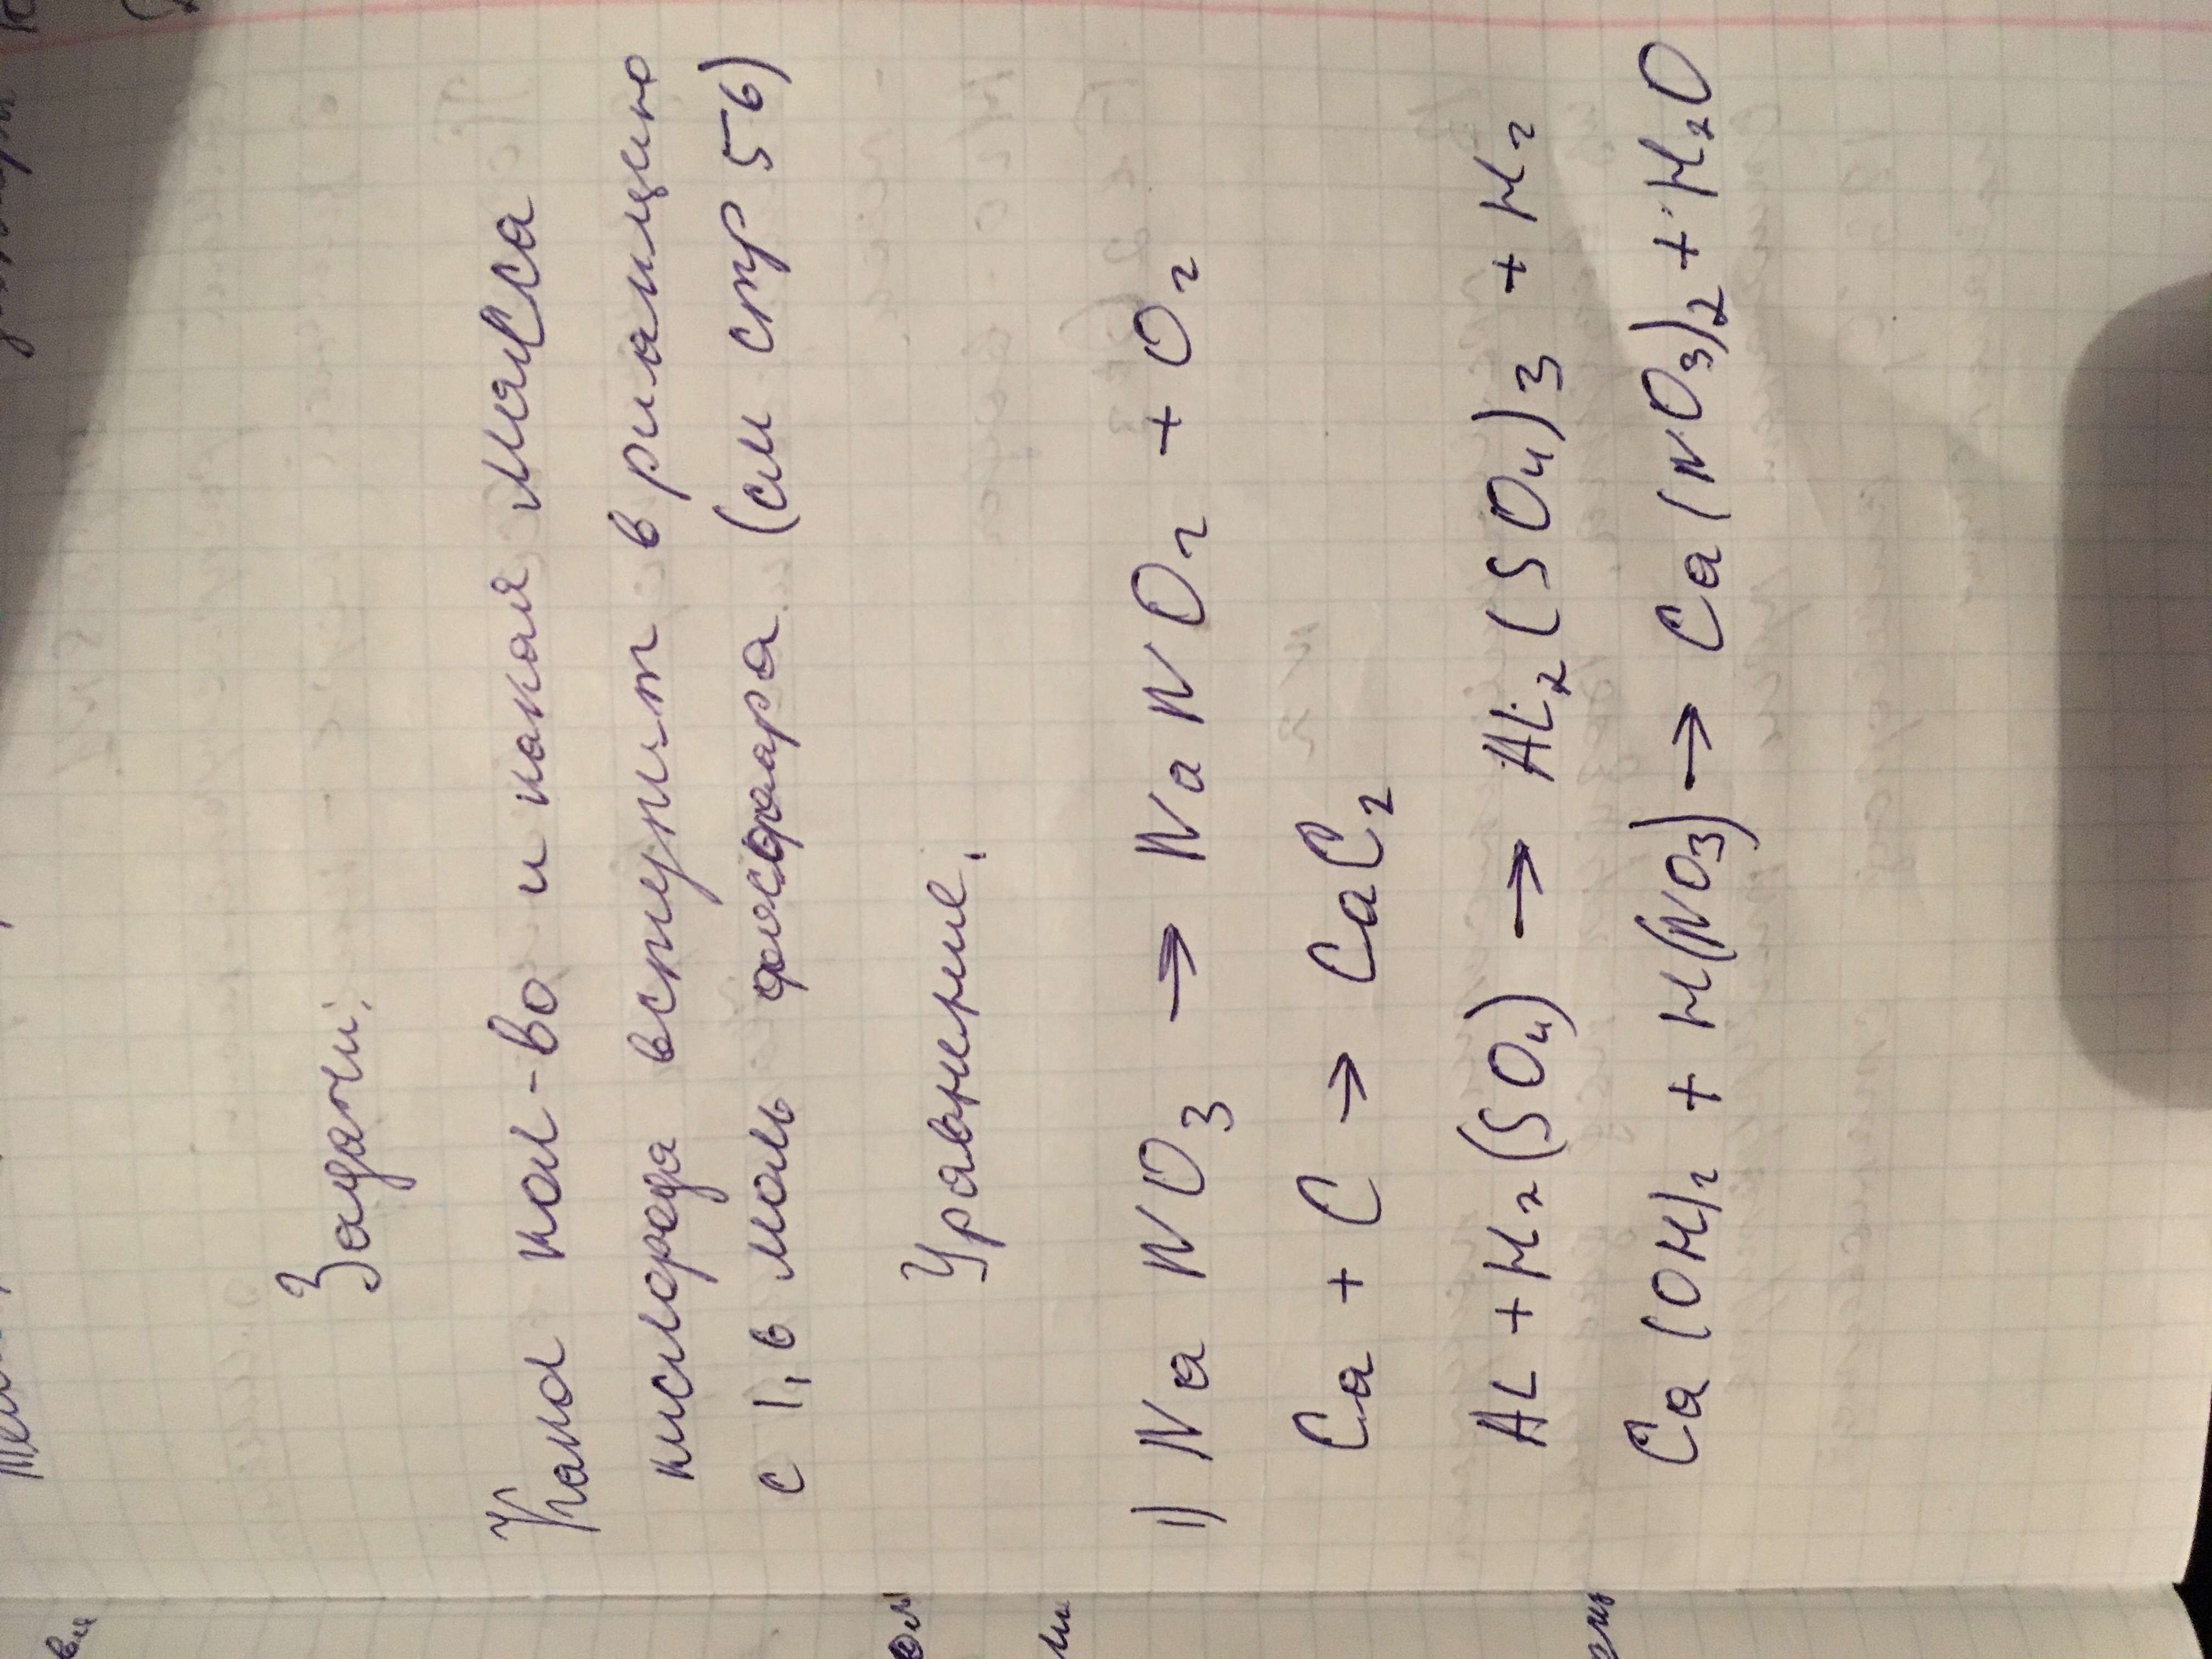 Задачи:
Како кол-во и какая масса
кислорода вступит в риакцию
с 1,6 моль фосфора (см стр 56)
Уравнение.
1) Na NO3 → Na NO2 + O2
Ca + C → CaC2
AL + H2(SO4) → AL2(SO4)3 + H2
Ca(OH)2 + H(NO3) → Ca(NO3)2 + H2O